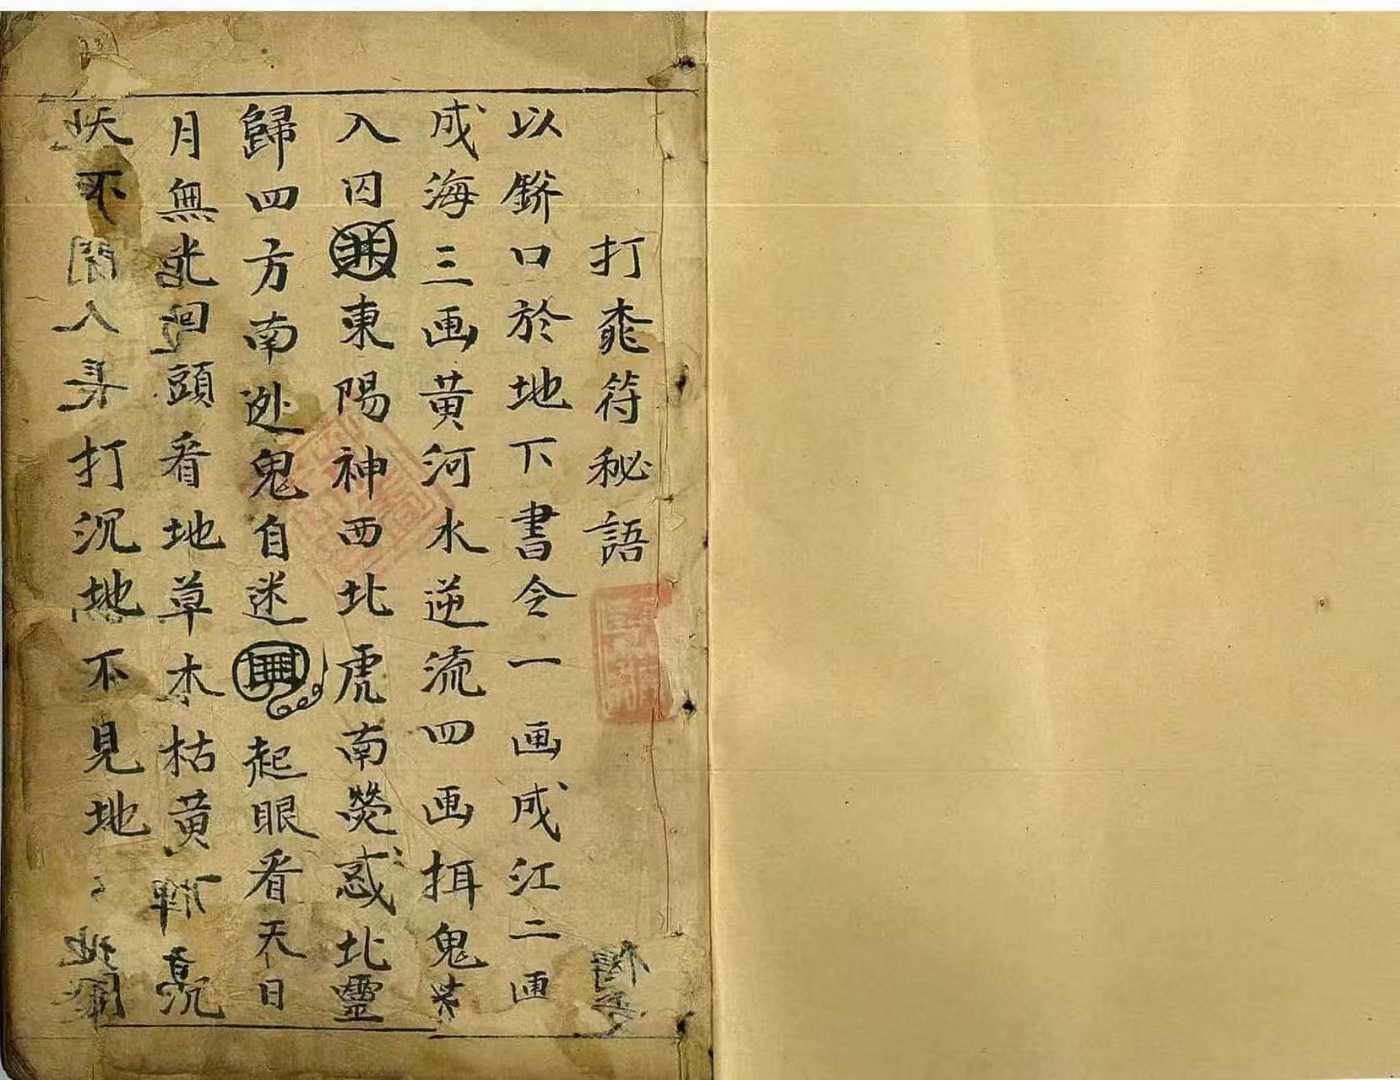 打符秘語
以缾口於地下書令一画成江二画
成海三画黄河水逆流四画揖鬼
入囚東陽神西北虎南熒惑北靈
歸四方南逊鬼自迷起眼看天日
月無光回頭看地草木枯黄沉
天不人打沉地不見地